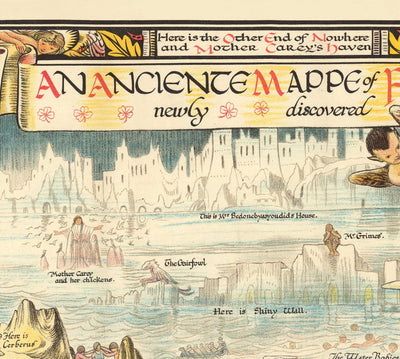 Here is the Other End of Nowhere
and Mother Carey's Haven
AN ANCIENTE MAPPE of F
newly discovered
This is Mrs Bedonebyasyoudid's House.
Mr Grimes.
Mother Carey
and her chickens.
The Gairfowl
Here is Shiny Wall.
Here is
Cerberus
The Water Babies